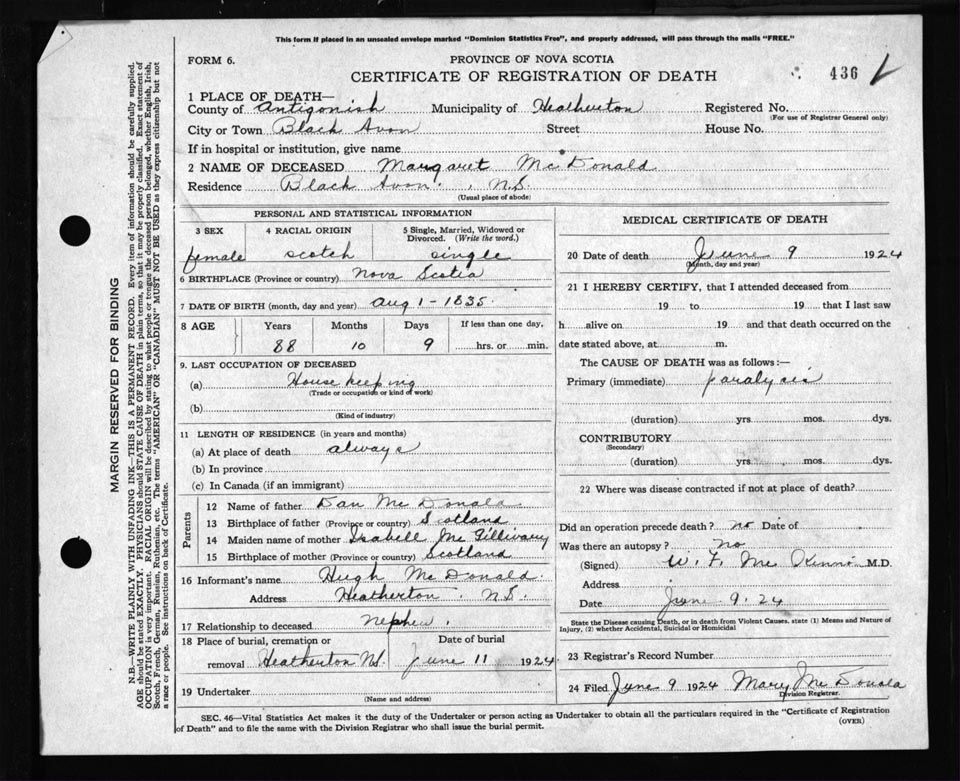 This form if placed in an unsealed envelope marked "Dominion Statistics Free", and properly addressed, will pass through the mails "FREE."
FORM 6.
PROVINCE OF NOVA SCOTIA
CERTIFICATE OF REGISTRATION OF DEATH
436
1 PLACE OF DEATH—
County of Antigonish Municipality of Heatherton Registered No.
(For use of Registrar General only)
City or Town Black Avon Street House No.
If in hospital or institution, give name
2 NAME OF DECEASED Margaret McDonald
Residence Black Avon, N.S.
(Usual place of abode)
PERSONAL AND STATISTICAL INFORMATION
3 SEX 4 RACIAL ORIGIN 5 Single, Married, Widowed or Divorced. (Write the word.)
female scotch single
6 BIRTHPLACE (Province or country) Nova Scotia
7 DATE OF BIRTH (month, day and year) Aug 1 - 1835.
8 AGE Years Months Days If less than one day,
88 10 9 hrs. or min.
9. LAST OCCUPATION OF DECEASED
(a) House keeping
(Trade or occupation or kind of work)
(b)
(Kind of industry)
11 LENGTH OF RESIDENCE (in years and months)
(a) At place of death always
(b) In province
(c) In Canada (if an immigrant)
Parents
12 Name of father Dan McDonald
13 Birthplace of father (Province or country) Scotland
14 Maiden name of mother Isabell McGillivary
15 Birthplace of mother (Province or country) Scotland
16 Informant's name Hugh McDonald
Address Heatherton, N.S.
17 Relationship to deceased nephew.
18 Place of burial, cremation or removal Heatherton NS. Date of burial June 11 1924
19 Undertaker
(Name and address)
MEDICAL CERTIFICATE OF DEATH
20 Date of death June 9 1924
(Month, day and year)
21 I HEREBY CERTIFY, that I attended deceased from
19 to 19 that I last saw
h alive on 19 and that death occurred on the
date stated above, at m.
The CAUSE OF DEATH was as follows:—
Primary (immediate) paralysis
(duration) yrs. mos. dys.
CONTRIBUTORY
(Secondary)
(duration) yrs. mos. dys.
22 Where was disease contracted if not at place of death?
Did an operation precede death? no Date of
Was there an autopsy? no
(Signed) W. F. M.D.
Address
Date June 9. 24
State the Disease causing Death, or in death from Violent Causes, state (1) Means and Nature of
Injury, (2) whether Accidental, Suicidal or Homicidal
23 Registrar's Record Number
24 Filed June 9 1924 Mary McDonald
Division Registrar.
SEC. 46—Vital Statistics Act makes it the duty of the Undertaker or person acting as Undertaker to obtain all the particulars required in the "Certificate of Registration
of Death" and to file the same with the Division Registrar who shall issue the burial permit.
(OVER)
MARGIN RESERVED FOR BINDING
N.B.—WRITE PLAINLY, WITH UNFADING INK—THIS IS A PERMANENT RECORD. Every item of information should be carefully supplied.
AGE should be stated EXACTLY. PHYSICIANS should STATE CAUSE OF DEATH in plain terms, so that it may be properly classified. Exact statement of
OCCUPATION is very important. RACIAL ORIGIN will be described by stating to what people or tongue the deceased person belonged, whether English, Irish,
Scotch, French, German, Russian, Ruthenian, etc. The terms "AMERICAN" OR "CANADIAN" MUST NOT BE USED as they express citizenship but not
a race or people. See instructions on back of Certificate.